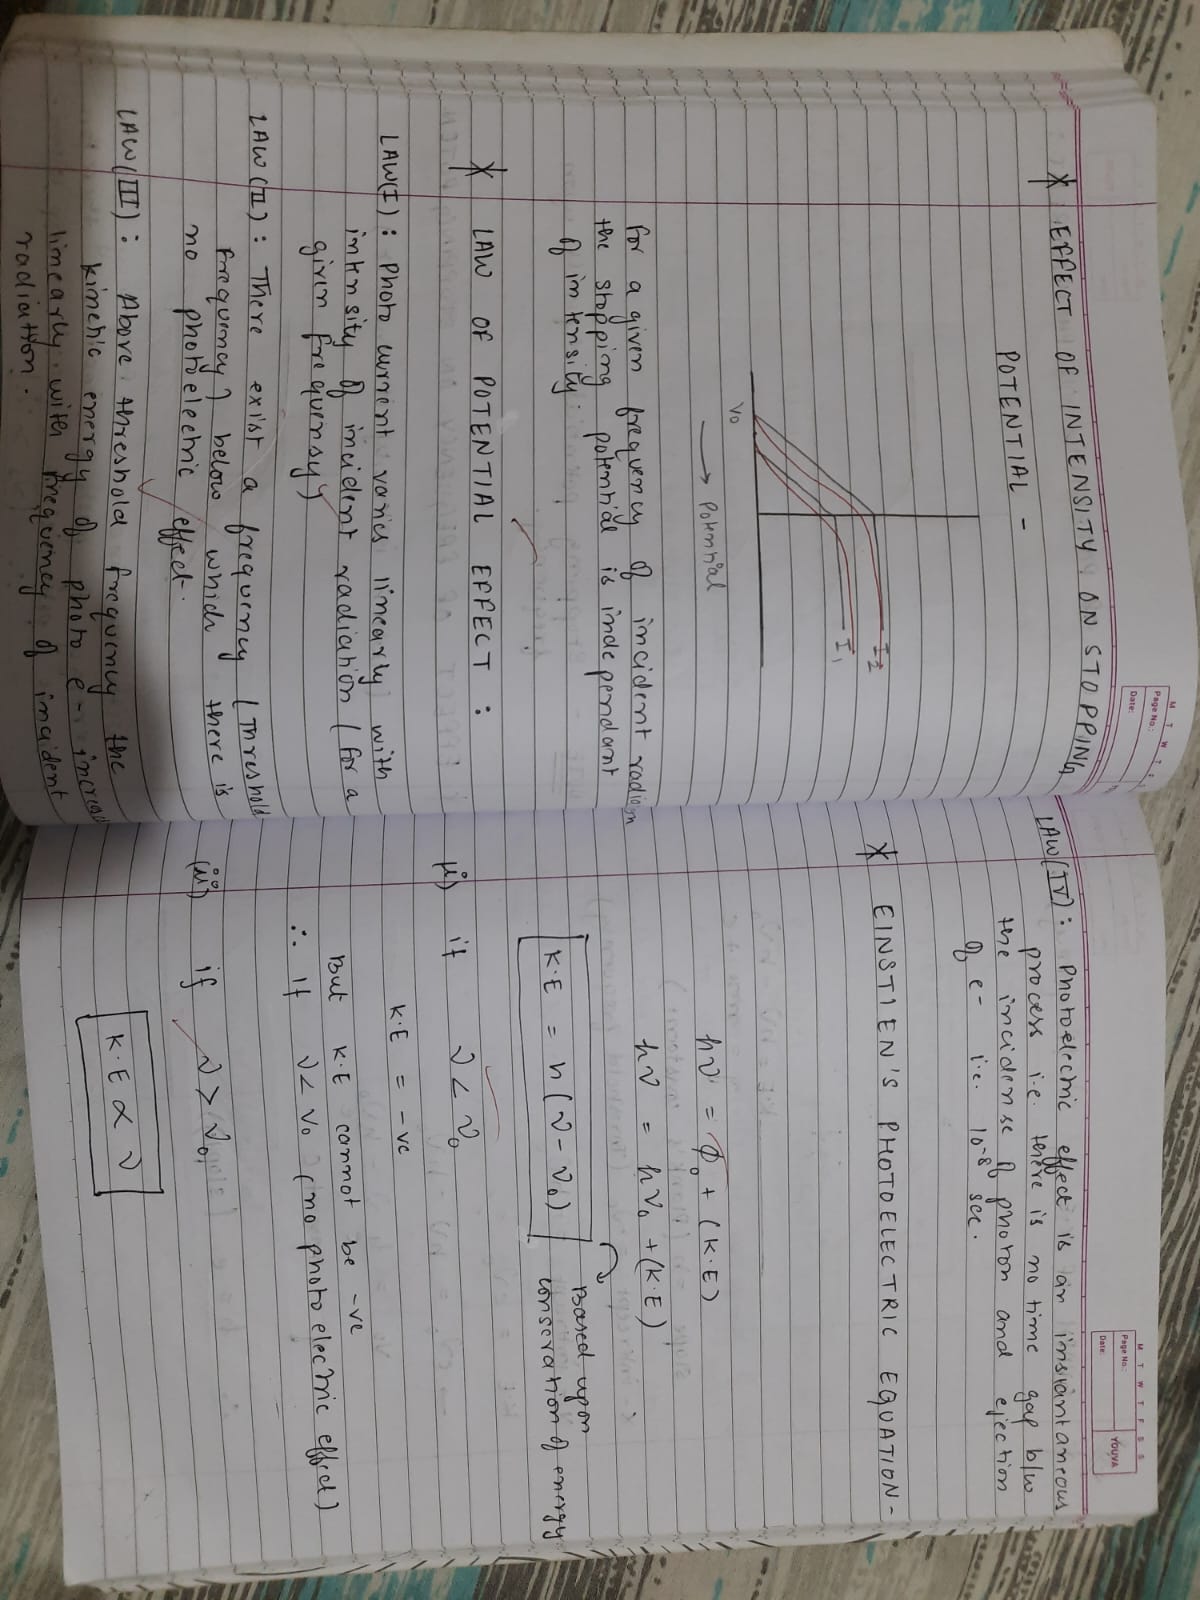 M T W T F
Page No.:
Date:
* EFFECT OF INTENSITY ON STOPPING
POTENTIAL -
I2
I1
V0
→ Potential
for a given frequency of incident radiation
the stopping potential is independant
of intensity.
* LAW OF POTENTIAL EFFECT :
LAW(I) : Photo current varies linearly with
intensity of incident radiation (for a
given frequensy)
LAW(II) : There exist a frequency (Threshold
frequency) below which there is
no photoelectric effect.
LAW(III) : Above threshold frequency the
kinetic energy of photo e- increase
linearly with frequency of incident
radiation.
M T W T F S S
Page No.:
Date:
YOUVA
LAW(IV) : Photoelectric effect is an instantaneous
process i.e. there is no time gap b/w
the incidense of photon and ejection
of e- i.e. 10-8 sec.
* EINSTIEN'S PHOTOELECTRIC EQUATION -
hν = Φ0 + (K.E)
hν = hν0 + (K.E)
K.E = h(ν - ν0)
Based upon
conseration of energy
(i) if ν < ν0
K.E = -ve
But K.E cannot be -ve
∴ If ν < ν0 (no photoelectric effect)
(ii) if ν > ν0
K.E ∝ ν